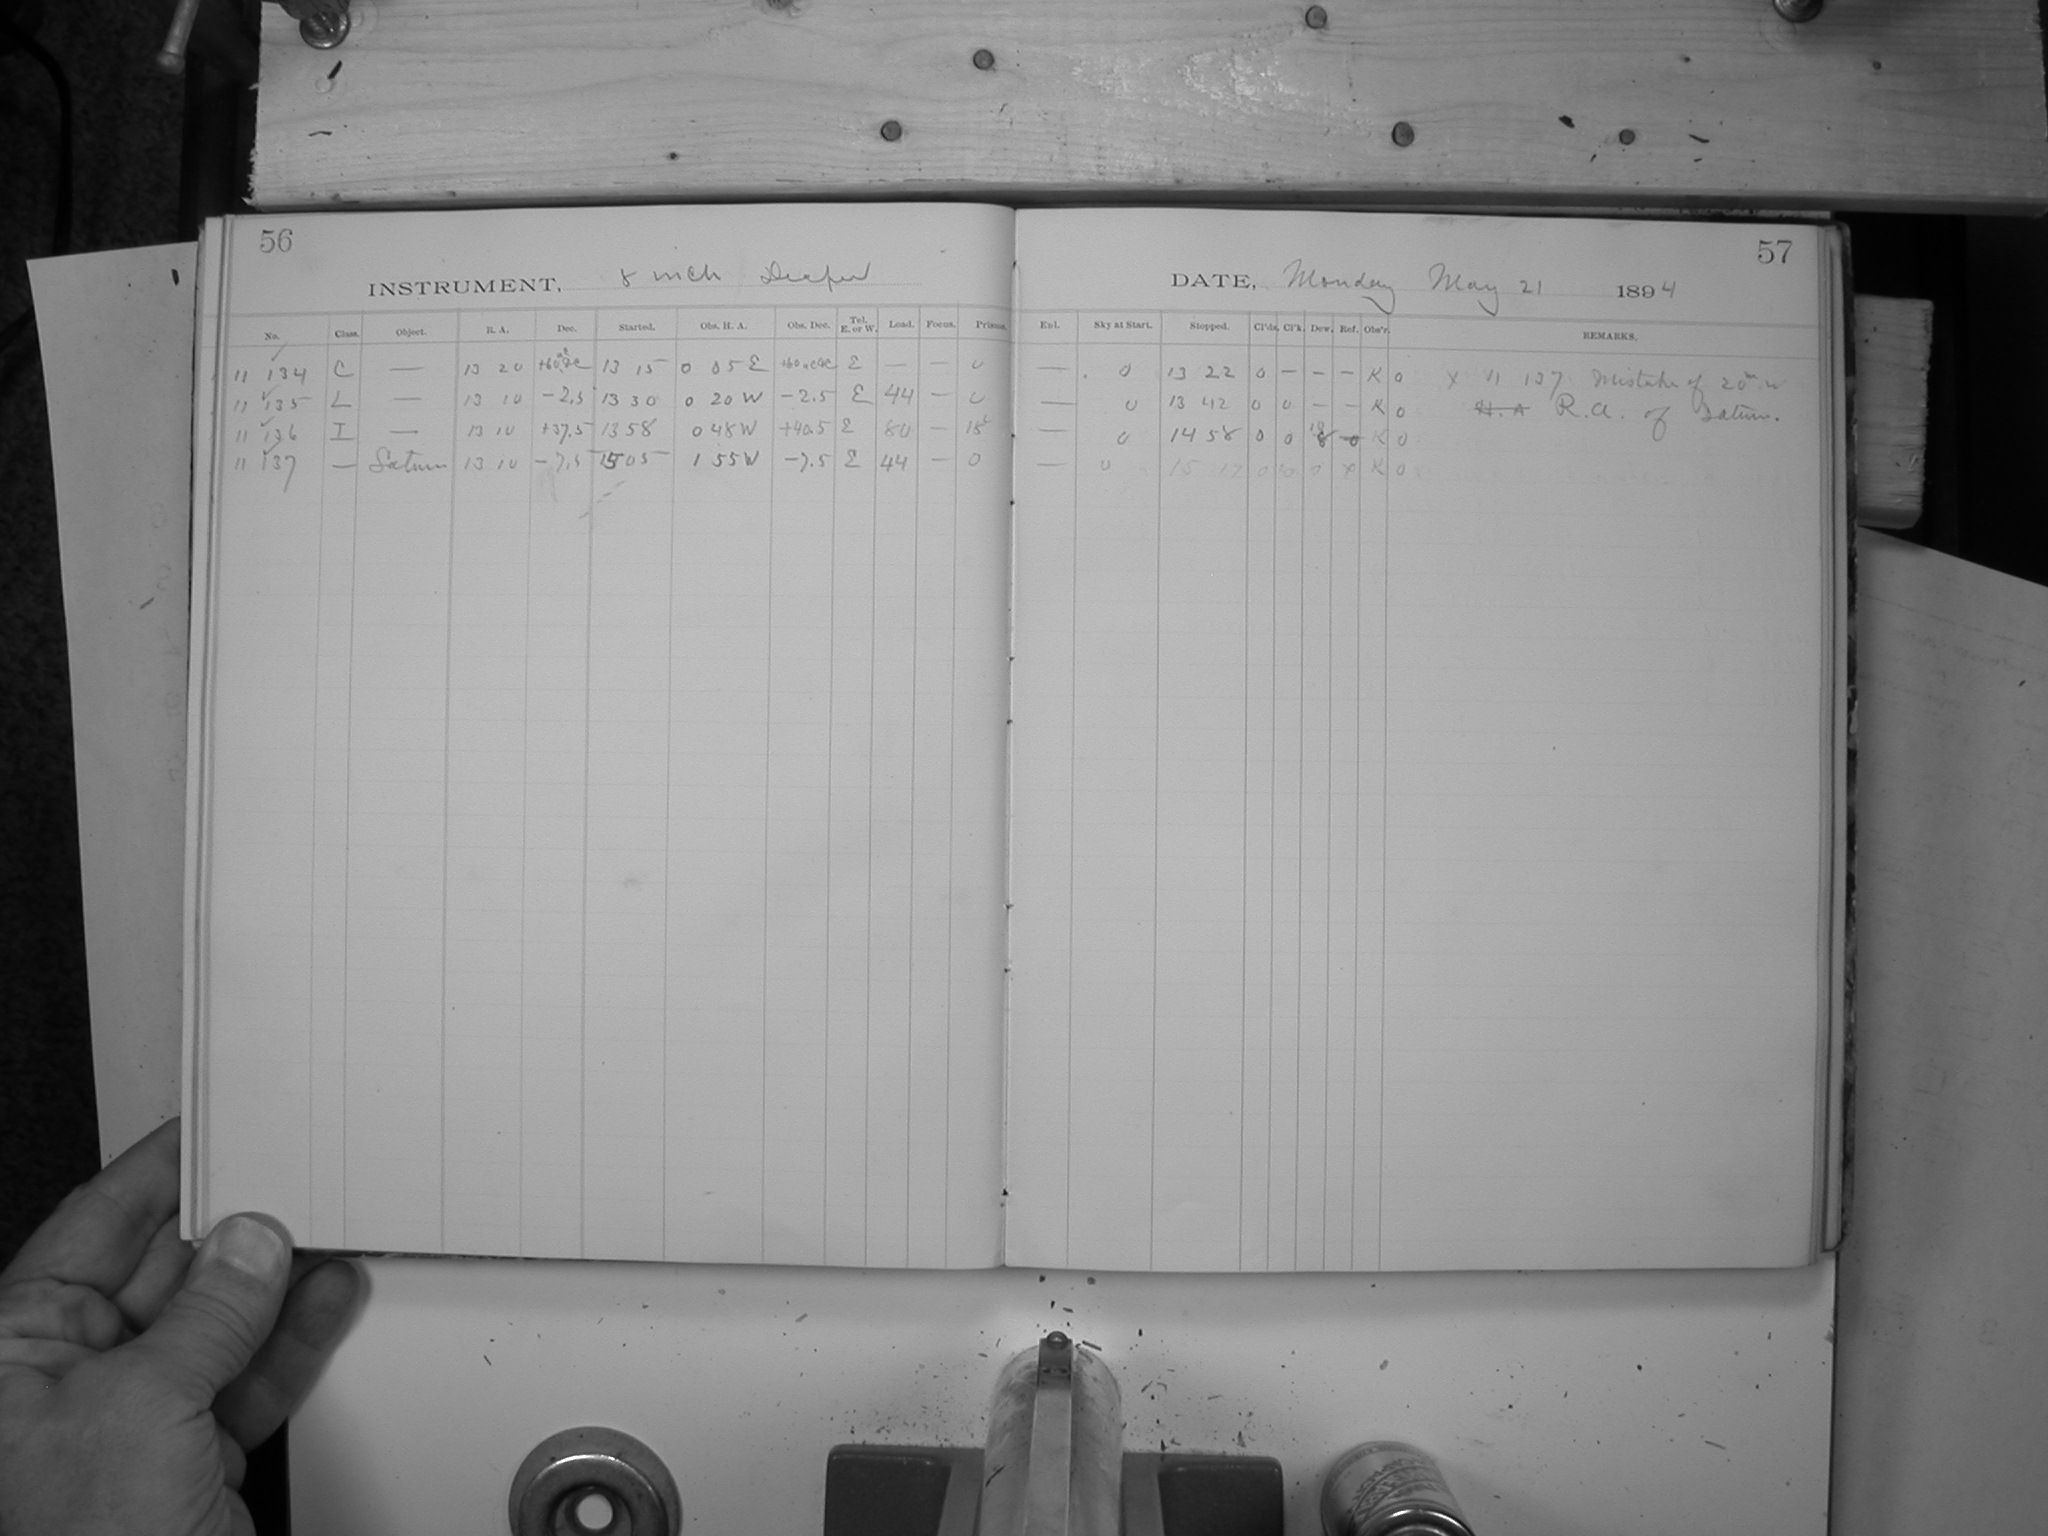 56
INSTRUMENT, 8 inch Draper
No. Class. Object. R. A. Dec. Started. Obs. H. A. Obs. Dec. Tel. E. or W. Load. Focus. Prisms.
11 134 C — 13 20 13 15 0 05 E E — — 0
11 135 L — 13 10 −2.5 13 30 0 20 W −2.5 E 44 — 0
11 136 I — 13 10 +37.5 13 58 0 48 W +40.5 E 80 — 15
11 137 — Saturn 13 10 −7.5 15 05 1 55 W −7.5 E 44 — 0
57
DATE, Monday May 21 1894
Enl. Sky at Start. Stopped. Cl'ds. Cl'k. Dew. Ref. Obs'r. REMARKS.
— 0 13 22 0 — — — K 0 x 11 137 Mistake of 20m in
— 0 13 42 0 0 — — K 0 H. A R.A. of Saturn.
— 0 14 58 0 0 K 0
— 0 15 17 0 0 0 x K 0